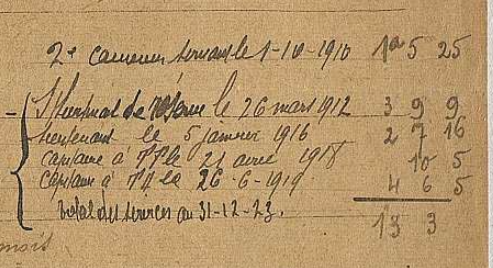 2e canonnier servant le 1-10-1910 1a 5 25
S/Lieutenant de réserve le 26 mars 1912 3 9 9
Lieutenant le 5 janvier 1916 2 7 16
Capitaine à TT le 21 avril 1918 10 5
Capitaine à TD le 26-6-1919 4 6 5
Total des services au 31-12-23. 13 3
mois